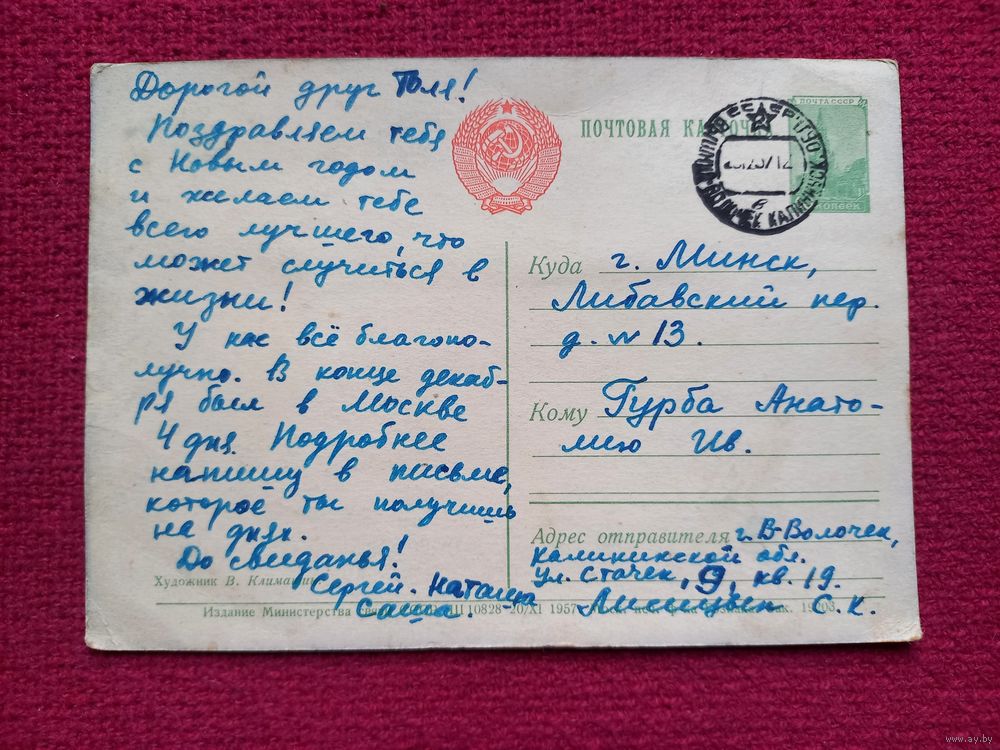 Дорогой друг Толя!
Поздравляем тебя
с Новым годом
и желаем тебе
всего лучшего, что
может случиться в
жизни!
У нас всё благопо-
лучно. В конце декаб-
ря был в Москве
4 дня. Подробнее
напишу в письме,
которое ты получишь
на днях.
До свиданья!
Сергей. Наташа
Саша.
Художник В.
Издание Министерства
10828 20/XI 1957
ПОЧТОВАЯ
ПОЧТА СССР
ВОЛОЧЕК
Куда г. Минск,
Либавский пер.
д. N 13.
Кому Гурба Анато-
лию Ив.
Адрес отправителя г. В-Волочек,
Калининской обл.
ул. Стачек, 9, кв. 19.
С. К.
www.ay.by